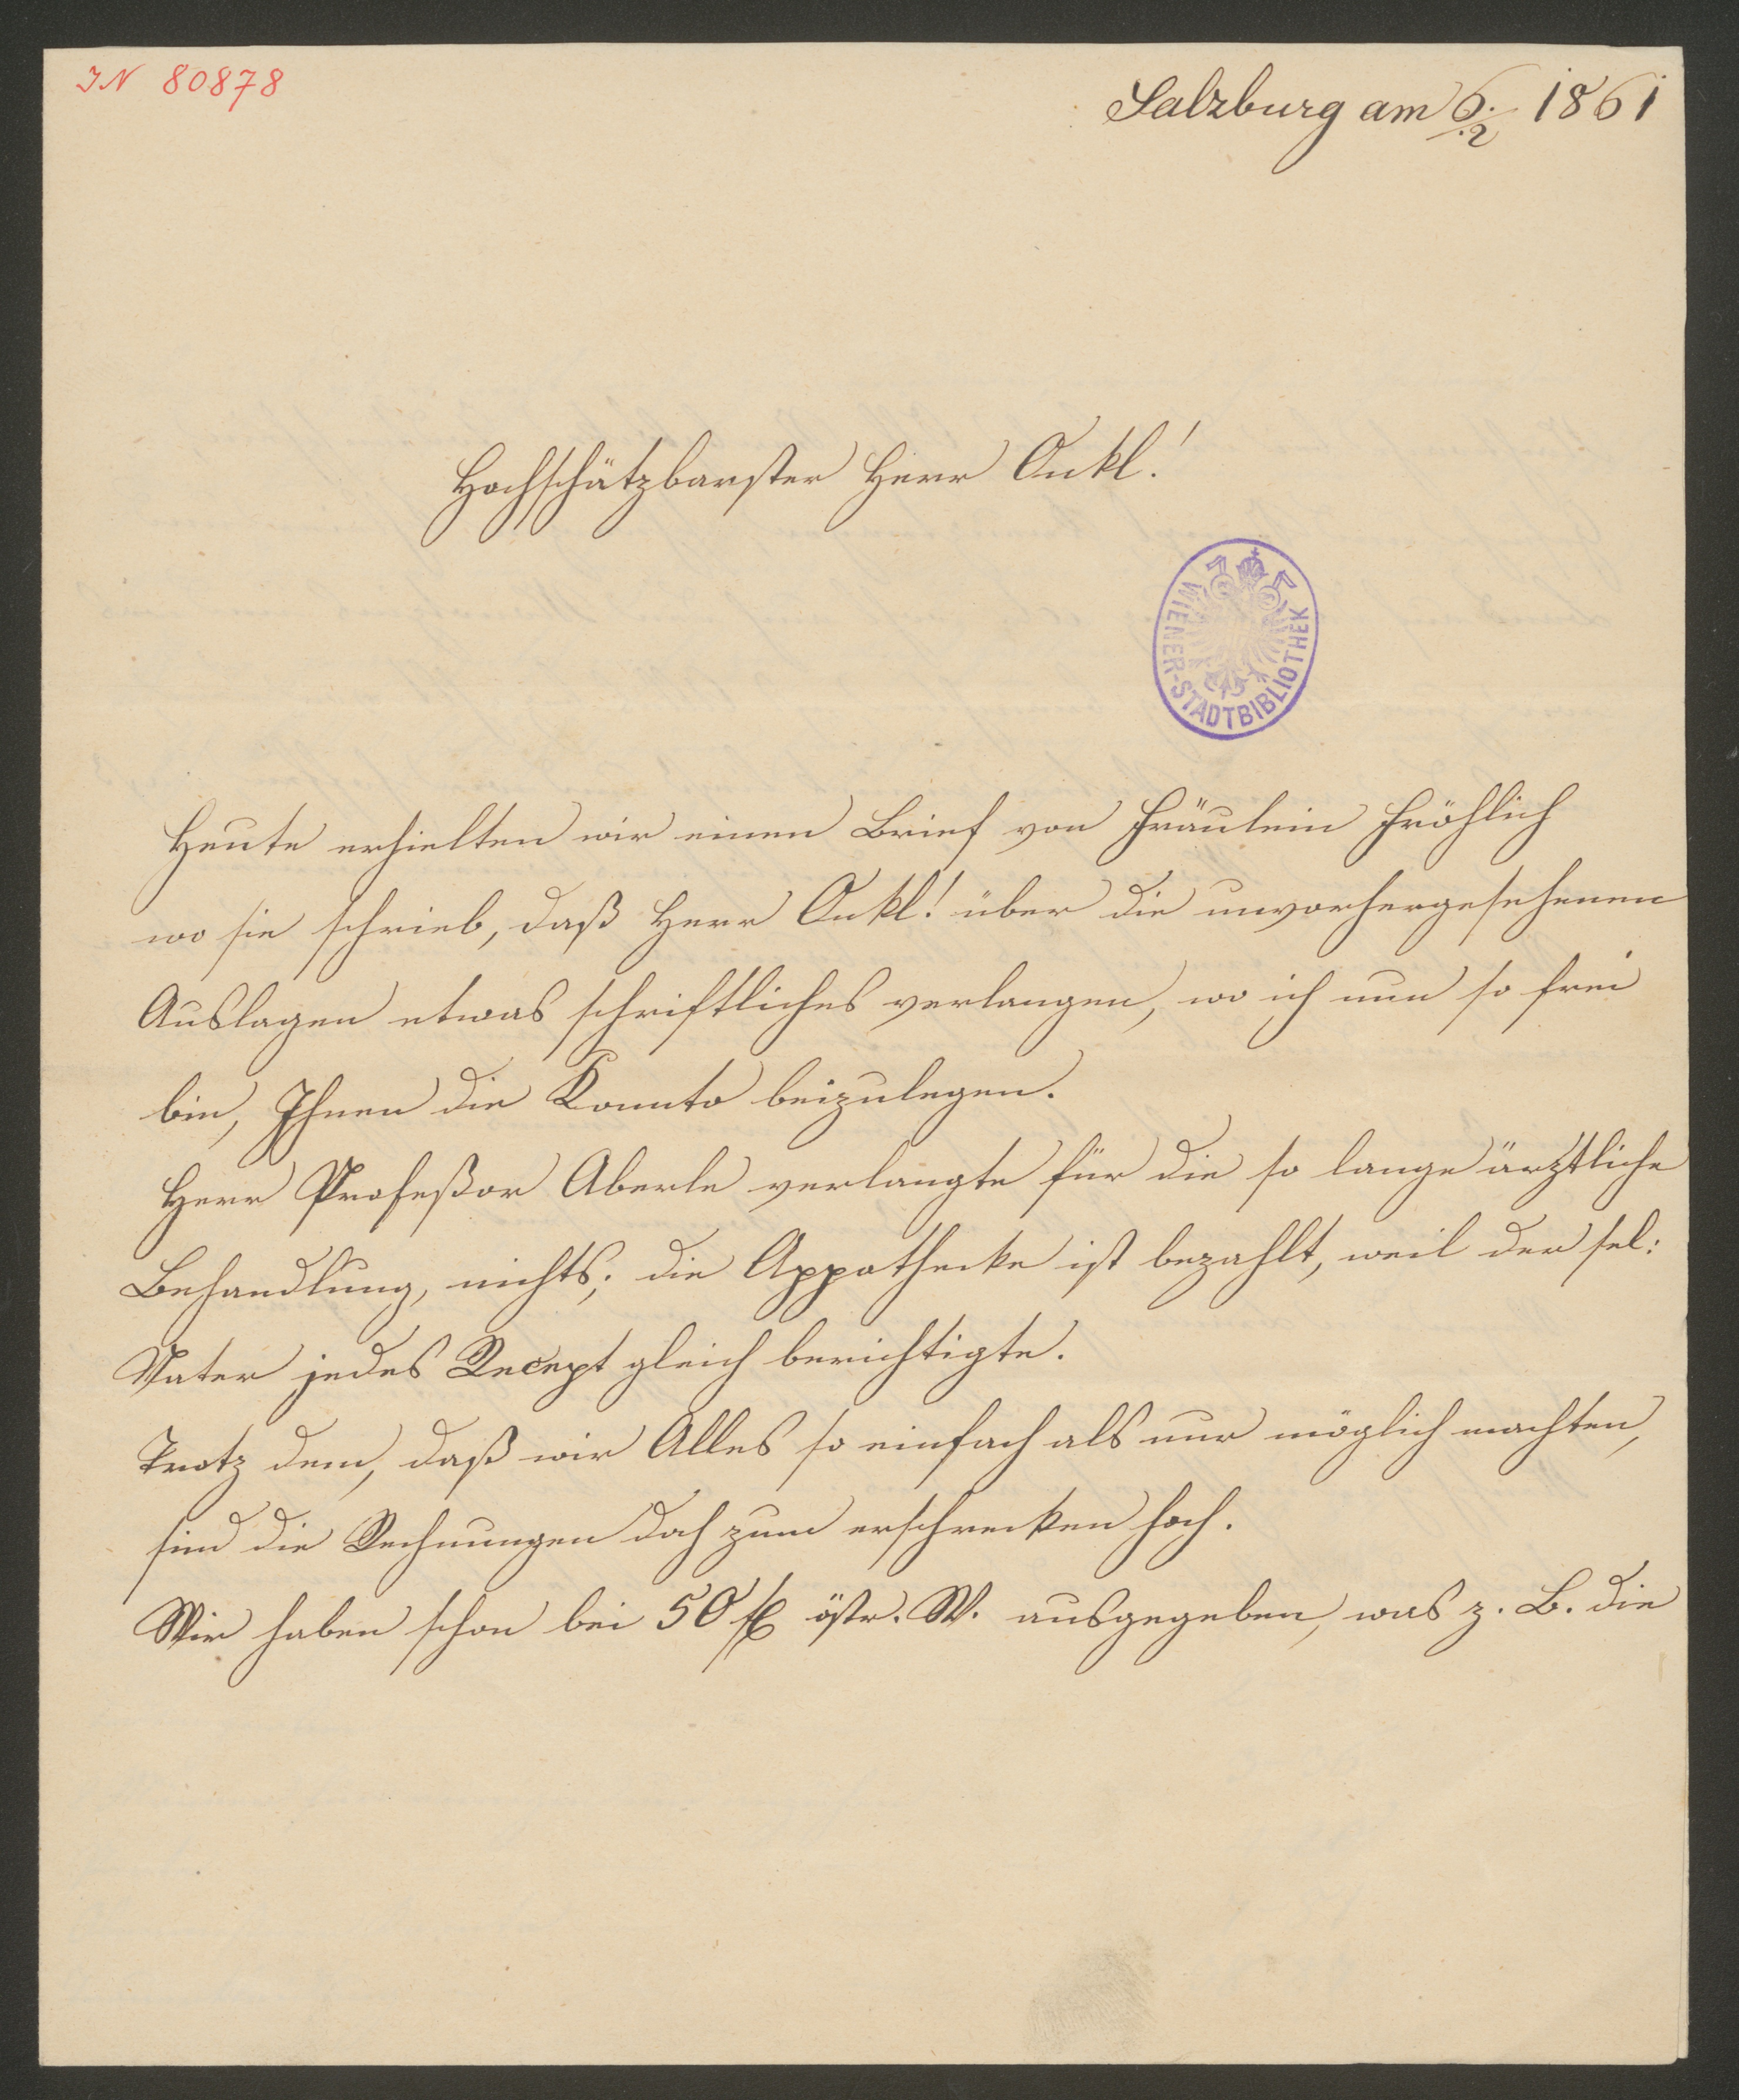 IN 80878
Salzburg am 6./.2 1861
Hochschätzbarster Herr Onkl!
WIENER-STADTBIBLIOTHEK
Heute erhielten wir einen Brief von Fräulein Fröhlich
wo sie schrieb, daß Herr Onkl! über die unvorhergesehenen
Auslagen etwas schriftliches verlangen, wo ich nun so frei
bin, Ihnen die Konnto beizulegen.
Herr Profeßor Aberle verlangte für die so lange ärztliche
Behandlung, nichts; die Appothecke ist bezahlt, weil der sel:
Vater jedes Recept gleich berichtigte.
Trotz dem, daß wir Alles so einfach als nur möglich machten,
sind die Rechnungen doch zum erschrecken hoch.
Wir haben schon bei 50 fl östr. W. ausgegeben, was z. B. die